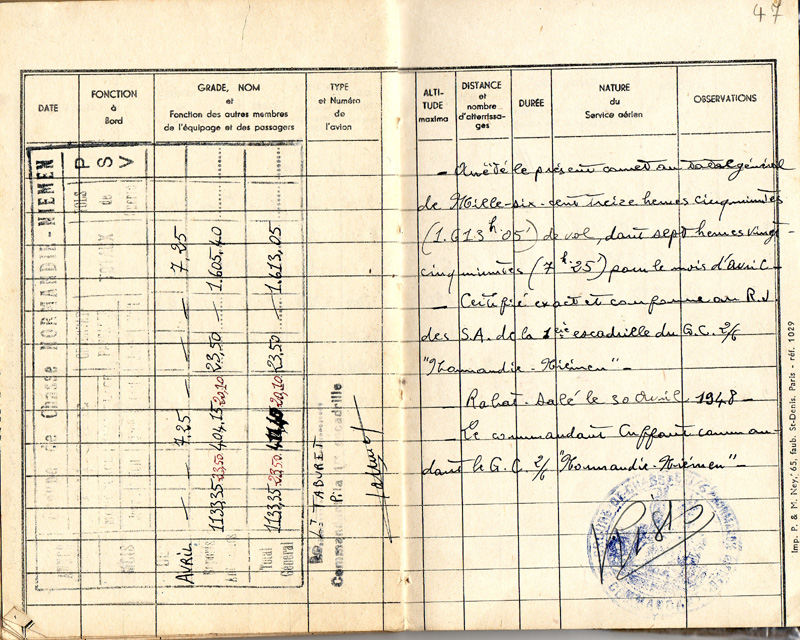 47
DATE
FONCTION
à
Bord
GRADE, NOM
et
Fonction des autres membres
de l'équipage et des passagers
TYPE
et Numéro
de
l'avion
ALTI-
TUDE
maxima
DISTANCE
et
nombre
d'atterrissa-
ges
DURÉE
NATURE
du
Service aérien
OBSERVATIONS
Groupe de Chasse NORMANDIE-NIEMEN
P
S
V
AVRIL — 7,25 — — 7,25
1133,35 23,50 404,15 20,10 23,50 — 1.605,40
Total
Général
1133,35 23,50 20,10 23,50 — 1.613,05
Lt TABURET
— Arrêté le présent carnet au total général
de Mille-six-cent treize heures cinq minutes
(1.613h.05') de vol, dont sept heures vingt
cinq minutes (7h.25') pour le mois d'avril —
— Certifié exact et conforme au R.J.
des S.A. de la 1ère escadrille du G.C. 2/6
"Normandie-Niémen" —
— Rabat-Salé le 30 avril 1948 —
— Le commandant Cuffaut comman-
dant le G.C. 2/6 "Normandie-Niémen" —
Imp. P. & M. Ney, 65, faub. St-Denis. Paris - réf. 1029